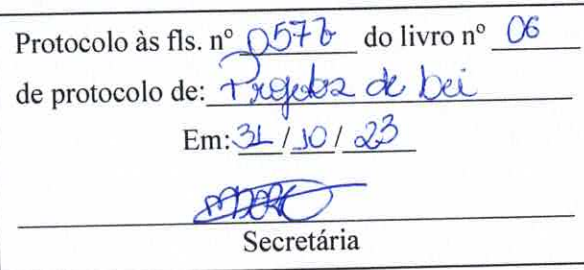 Protocolo às fls. nº 057 do livro nº 06
de protocolo de: Projetos de Lei
Em: 31 / 10 / 23
Secretária